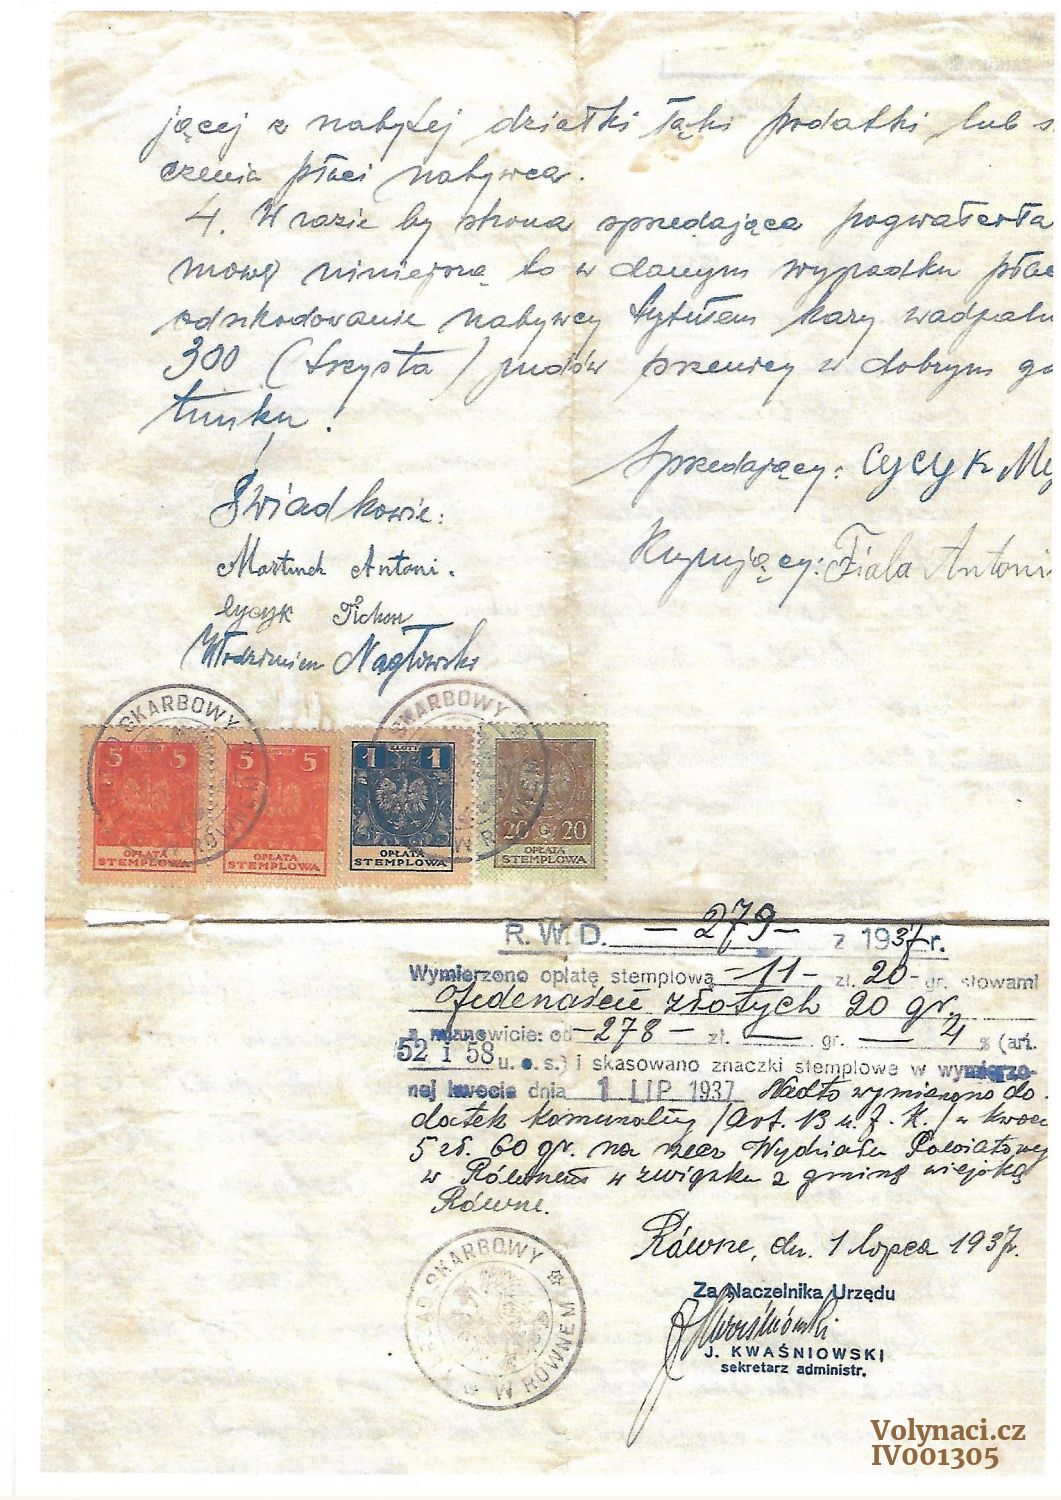 jącej z nabytej działki łąki podatki lub
czenia płaci nabywca.
4. W razie by strona sprzedająca pogwałciła
mowę niniejszą to w danym wypadku płac
odszkodowanie nabywcy tytułem kary wadjaln
300 (trzysta) pudów pszenicy w dobrym ga
tunku.
Sprzedający: Cycyk
Świadkowie:
Kupujący: Fiala Antoni
Martinek Antoni.
Cycyk Tichon
Włodzimierz Nagłowski
URZĄD SKARBOWY W RÓWNEM
SKARBOWY W RÓWNEM
5 ZŁOTY 5
OPŁATA
STEMPLOWA
5 ZŁOTY 5
OPŁATA
STEMPLOWA
1 ZŁOTY 1
OPŁATA
STEMPLOWA
20 G 20
OPŁATA
STEMPLOWA
R. W. D. - 279 - z 1937 r.
Wymierzono opłatę stemplową - 11 - zł. 20 - gr. słowami
Jedenaście złotych 20 gr.
a mianowicie: od - 278 - zł. — gr. — 4 % (art.
52 i 58 u. o. s.) i skasowano znaczki stemplowe w wymierzo-
nej kwocie dnia 1 LIP. 1937 Nadto wymierzono do
datek komunalny /Art. 13 u. f. K./ w kwoci
5 zł. 60 gr. na rzecz Wydziału Powiatowego
w Równem w związku z gminą wiejską
Równe.
Równe, dn. 1 lipca 1937 r.
URZĄD SKARBOWY W RÓWNEM
Za Naczelnika Urzędu
J. KWAŚNIOWSKI
sekretarz administr.
Volynaci.cz
IV001305